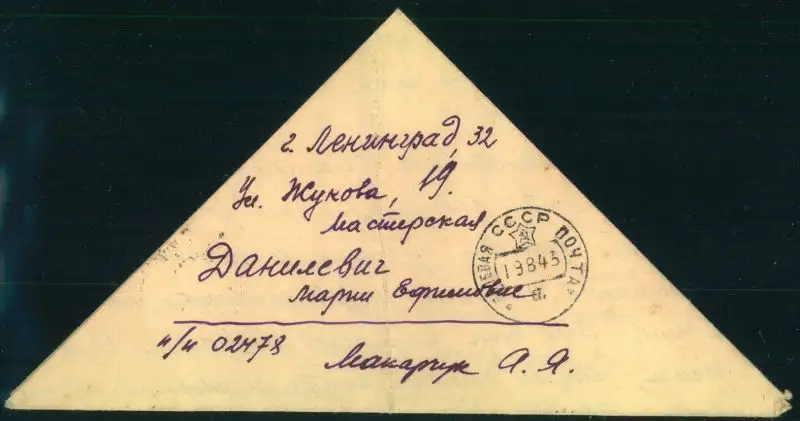 г. Ленинград, 32
Ул. Жукова, 19.
Мастерская
Данилевич
Марии Ефимовне
п/п 02478
Макарчук А. Я.
ПОЛЕВАЯ СССР ПОЧТА
19843